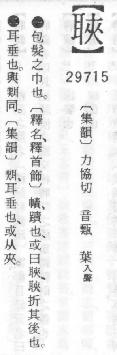 【聗】
29715
〔集韻〕力協切 音 葉入聲
㊀包髮之巾也。〔釋名、釋首飾〕幘、蹟也、或曰聗、聗折其後也。
㊁耳垂也。與 同。〔集韻〕 、耳垂也、或从夾。